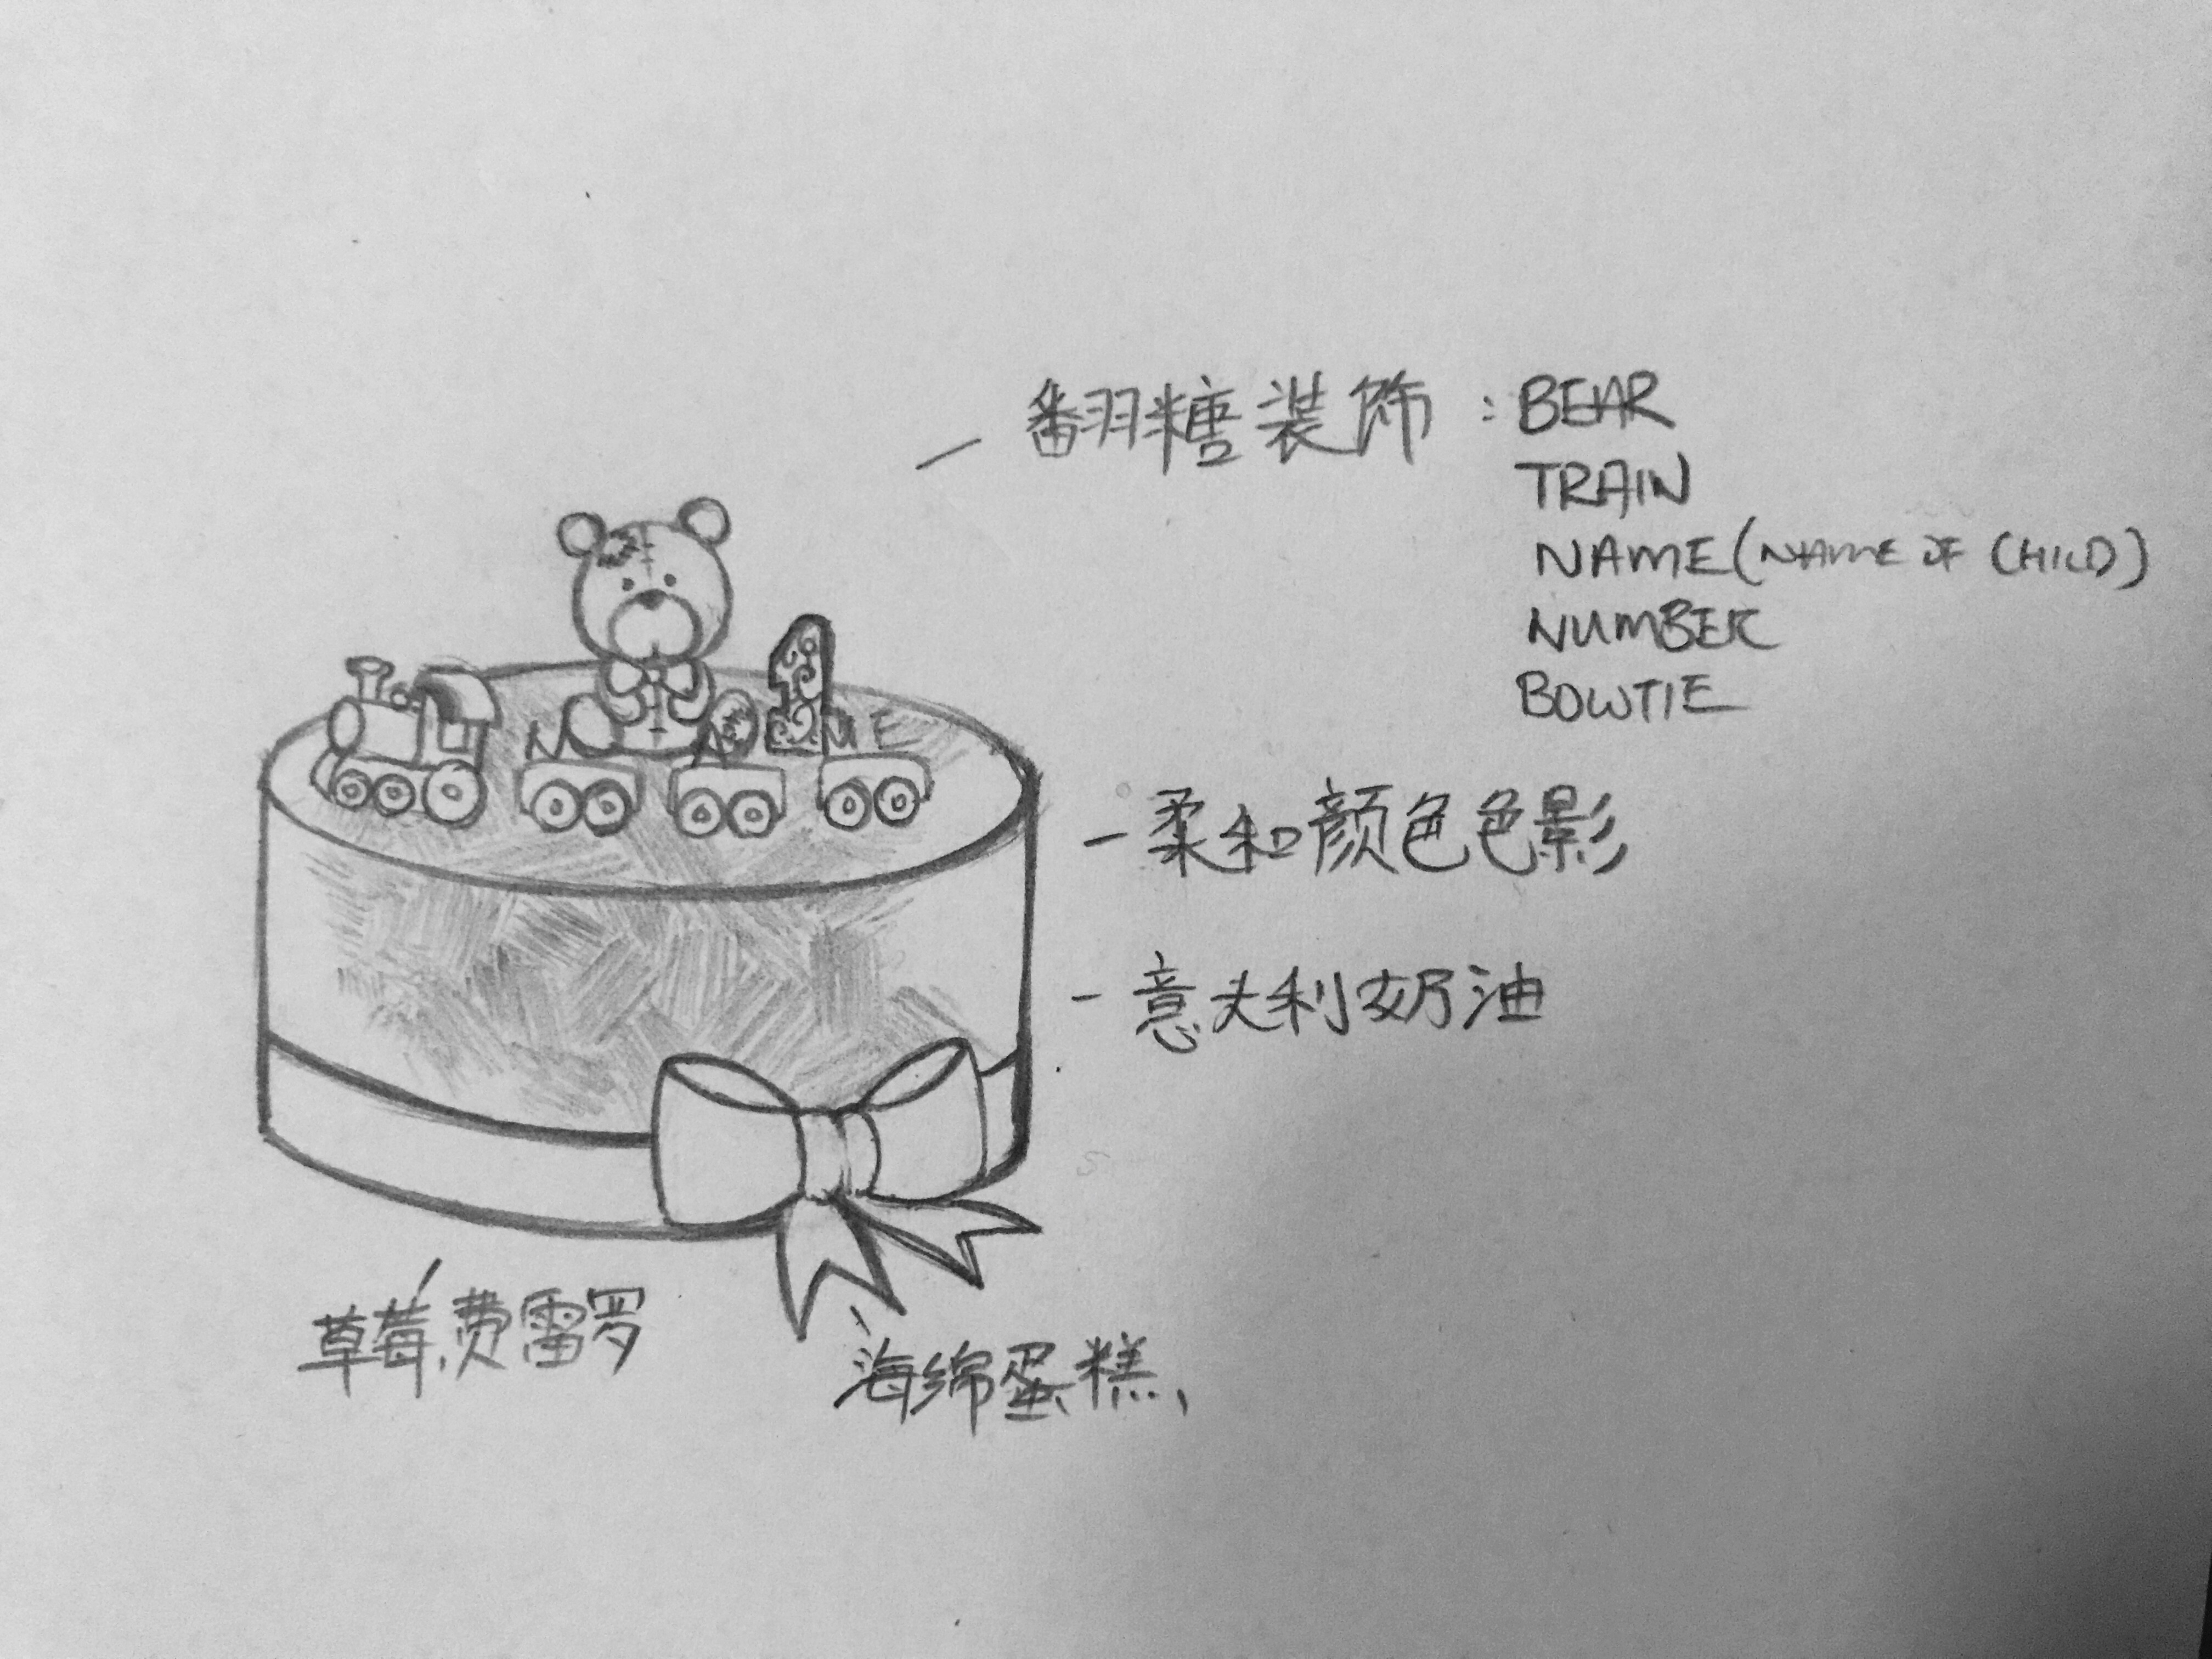 - 翻糖装饰 : BEAR
TRAIN
NAME (NAME OF CHILD)
NUMBER
BOWTIE
1
N A M E
- 柔和颜色色影
- 意大利奶油
草莓,费雷罗
海绵蛋糕、